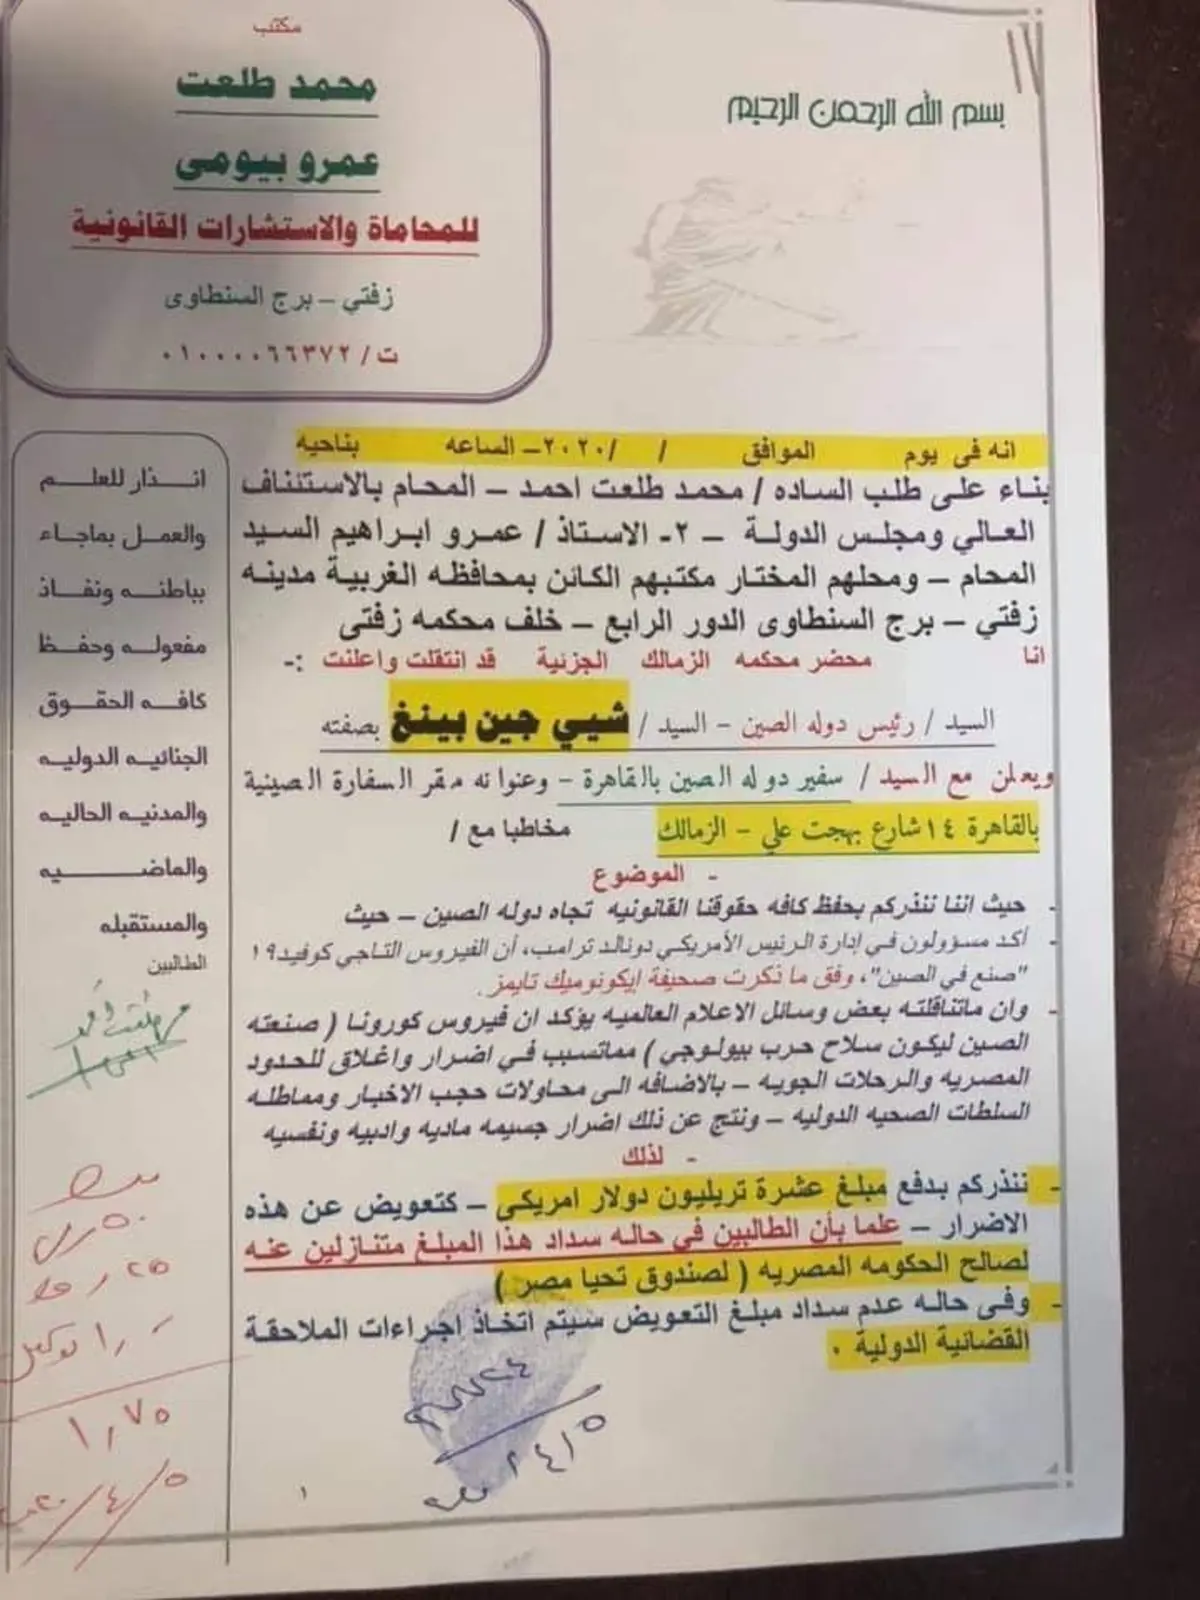 مكتب
محمد طلعت
عمرو بيومى
للمحاماة والاستشارات القانونية
زفتي – برج السنطاوى
ت / ٠١٠٠٠٠٦٦٣٧٢
بسم الله الرحمن الرحيم
انه فى يوم الموافق / /٢٠٢٠– الساعه بناحيه
بناء على طلب الساده / محمد طلعت احمد – المحام بالاستئناف
العالي ومجلس الدولة – ٢- الاستاذ / عمرو ابراهيم السيد
المحام – ومحلهم المختار مكتبهم الكائن بمحافظه الغربية مدينه
زفتي – برج السنطاوى الدور الرابع – خلف محكمه زفتى
انا محضر محكمه الزمالك الجزئية قد انتقلت واعلنت :-
السيد / رئيس دوله الصين – السيد / شيي جين بينغ بصفته
ويعلن مع السيد / سفير دوله الصين بالقاهرة – وعنوانه مقر السفارة الصينية
بالقاهرة ١٤ شارع بهجت علي – الزمالك مخاطبا مع /
- الموضوع
- حيث اننا ننذركم بحفظ كافه حقوقنا القانونيه تجاه دوله الصين – حيث
- أكد مسؤولون في إدارة الرئيس الأمريكي دونالد ترامب، أن الفيروس التاجي كوفيد١٩
"صنع في الصين"، وفق ما ذكرت صحيفة إيكونوميك تايمز.
- وان ماتناقلته بعض وسائل الاعلام العالميه يؤكد ان فيروس كورونا ( صنعته
الصين ليكون سلاح حرب بيولوجي ) مماتسبب في اضرار واغلاق للحدود
المصريه والرحلات الجويه – بالاضافه الى محاولات حجب الاخبار ومماطله
السلطات الصحيه الدوليه – ونتج عن ذلك اضرار جسيمه ماديه وادبيه ونفسيه
- لذلك
- ننذركم بدفع مبلغ عشرة تريليون دولار امريكى – كتعويض عن هذه
الاضرار – علما بأن الطالبين في حاله سداد هذا المبلغ متنازلين عنه
لصالح الحكومه المصريه ( لصندوق تحيا مصر )
- وفى حاله عدم سداد مبلغ التعويض سيتم اتخاذ اجراءات الملاحقة
القضائية الدولية .
١
انذار للعلم
والعمل بماجاء
بباطنه ونفاذ
مفعوله وحفظ
كافه الحقوق
الجنائيه الدوليه
والمدنيه الحاليه
والماضيه
والمستقبله
الطالبين
١,٧٥